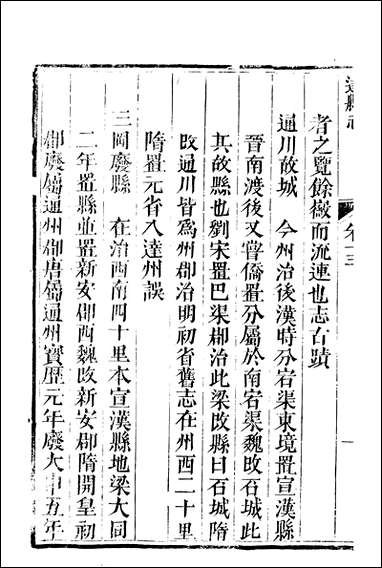 達縣志
卷十三
者之覽餘徽而流連也志古蹟
通川故城　今州治後漢時分宕渠東境置宣漢縣
晉南渡後又嘗僑置分屬於南宕渠魏改石城此
其故縣也劉宋置巴渠郡治此梁改縣曰石城隋
改通川皆為州郡治明初省舊志在州西二十里
隋置元省入達州誤
三岡廢縣　在治西南四十里本宣漢縣地梁大同
二年置縣並置新安郡西魏改新安郡隋開皇初
郡廢屬通州郡唐屬通州寶歷元年廢大中五年